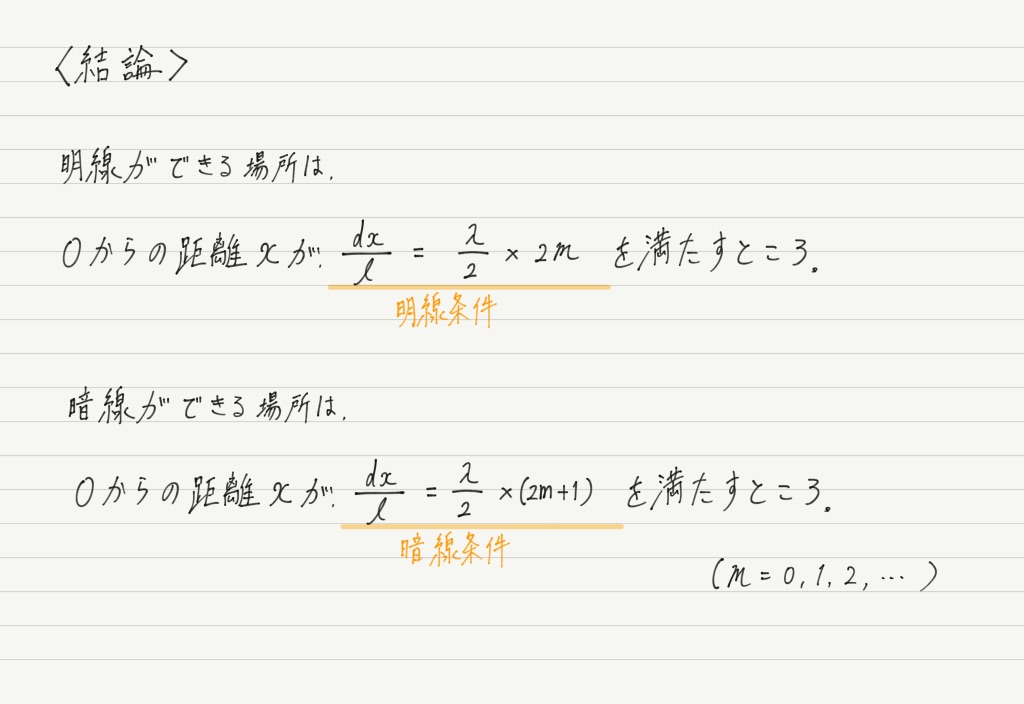 〈結論〉
明線ができる場所は、
Oからの距離xが、dx/l = λ/2 × 2m を満たすところ。
明線条件
暗線ができる場所は、
Oからの距離xが、dx/l = λ/2 ×(2m+1) を満たすところ。
暗線条件
(m = 0, 1, 2, … )